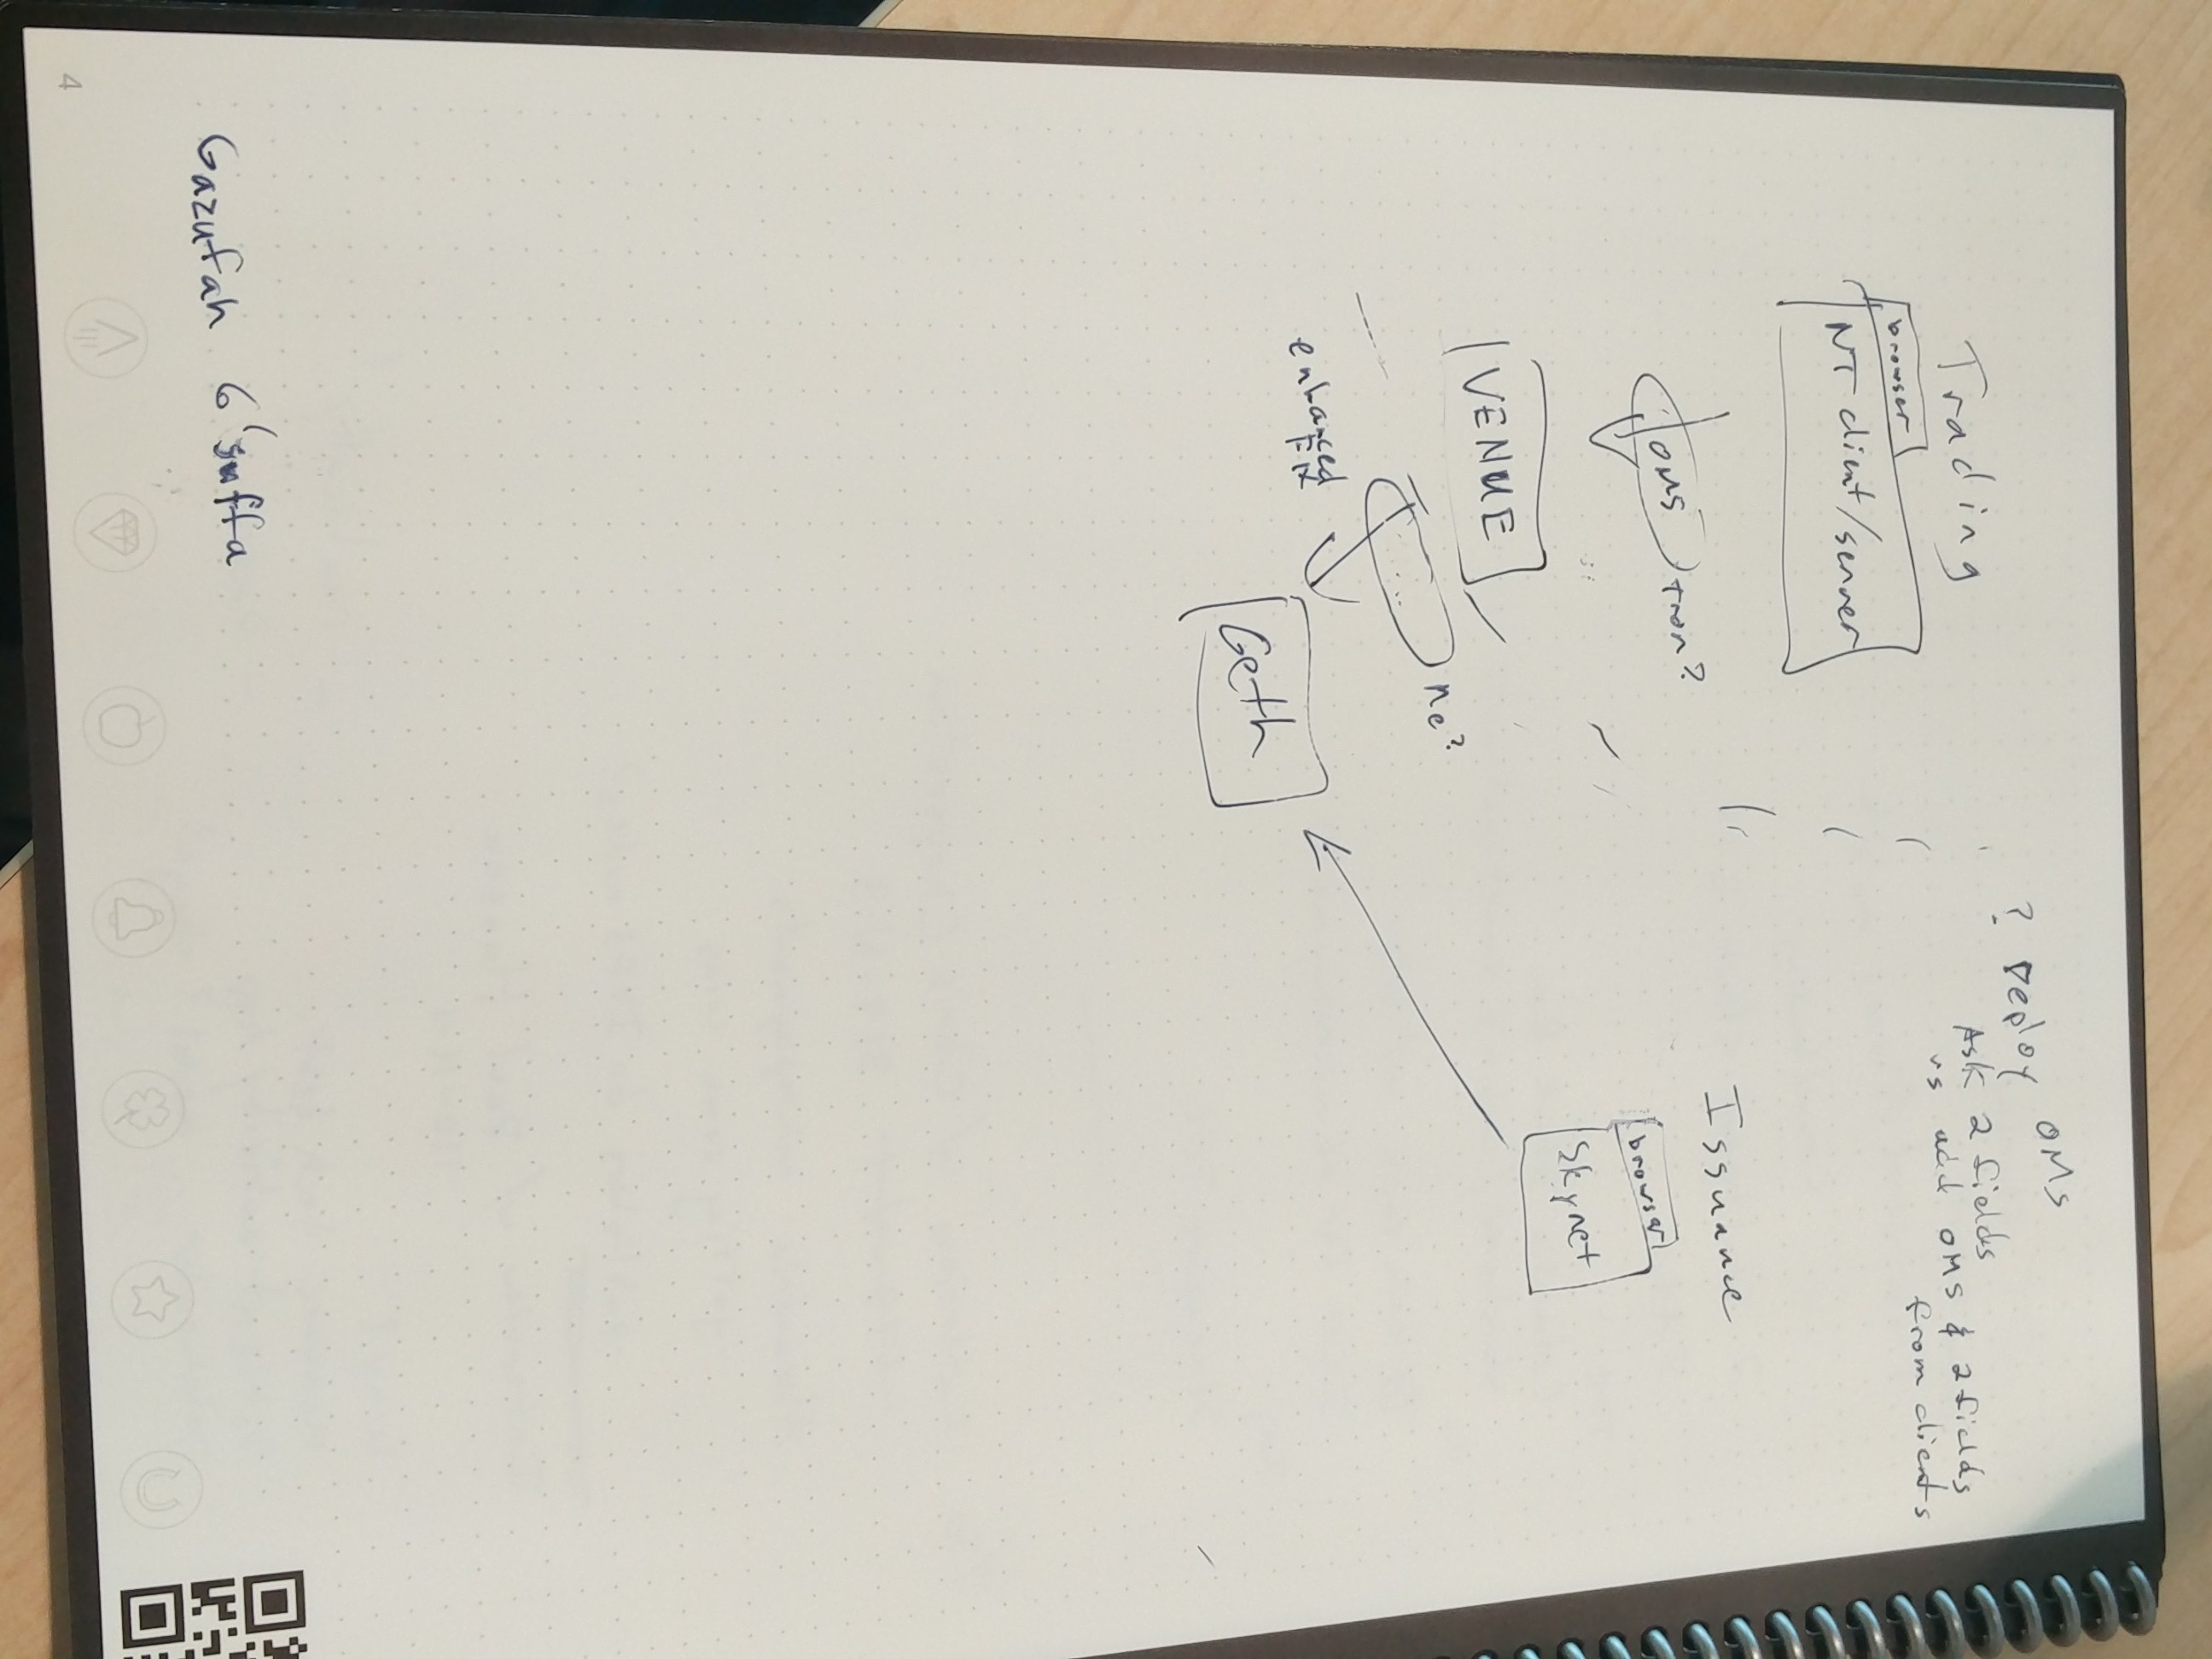 OMS
? Deploy
Ask 2 fields
vs add OMS & 2 fields
from clients
Trading
browser
NT client/server
OMS
tron?
Issuance
browser
Skynet
VENUE
me?
enhanced
FIX
Geth
Gazufah G'suffa
4